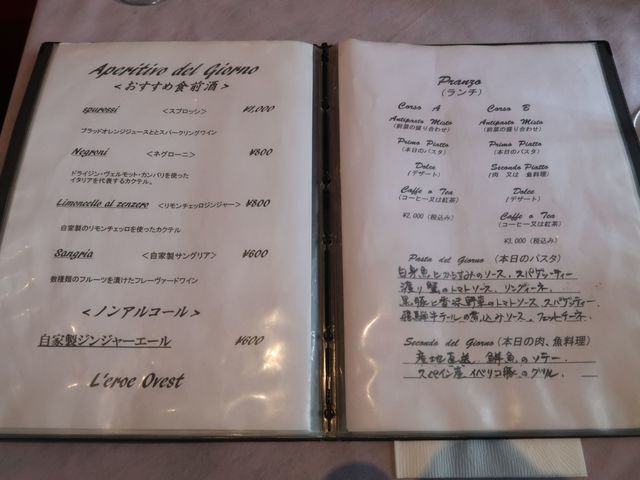 Aperitivo del Giorno
＜おすすめ食前酒＞
spurossi ＜スプロッシ＞ ¥1,000
ブラッドオレンジジュースとスパークリングワイン
Negroni ＜ネグローニ＞ ¥800
ドライジン・ヴェルモット・カンパリを使った
イタリアを代表するカクテル。
Limoncello al zenzero ＜リモンチェッロジンジャー＞ ¥800
自家製のリモンチェッロを使ったカクテル
Sangria ＜自家製サングリア＞ ¥600
数種類のフルーツを漬けたフレーヴァードワイン
＜ノンアルコール＞
自家製ジンジャーエール ¥600
L'eroe Ovest
Pranzo
（ランチ）
Corso A
Antipasto Misto
（前菜の盛り合わせ）
Primo Piatto
（本日のパスタ）
Dolce
（デザート）
Caffe o Tea
（コーヒー又は紅茶）
¥2,000（税込み）
Corso B
Antipasto Misto
（前菜の盛り合わせ）
Primo Piatto
（本日のパスタ）
Secondo Piatto
（肉 又は 魚料理）
Dolce
（デザート）
Caffe o Tea
（コーヒー又は紅茶）
¥3,000（税込み）
Pasta del Giorno（本日のパスタ）
白身魚とからすみのソース、スパゲッティー
渡り蟹のトマトソース、リングィーネ、
黒豚と香味野菜のトマトソース、スパゲッティー
飛騨牛テールの煮込みソース、フェットチーネ、
Secondo del Giorno（本日の肉、魚料理）
産地直送 鮮魚のソテー
スペイン産イベリコ豚のグリル、